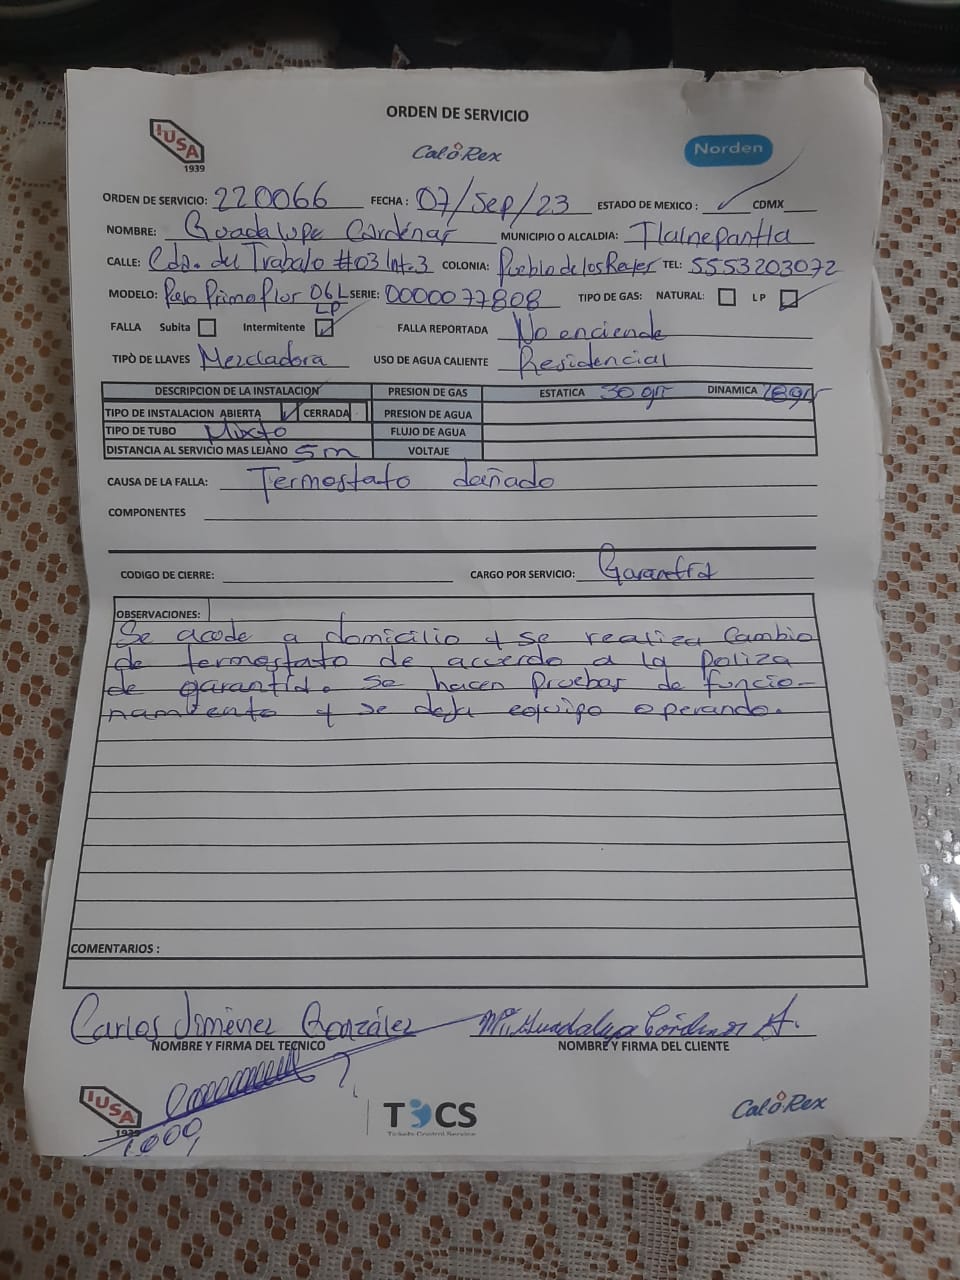 ORDEN DE SERVICIO
IUSA
1939
CalORex
Norden
ORDEN DE SERVICIO: 220066 FECHA: 07/Sep/23 ESTADO DE MEXICO: ✓ CDMX
NOMBRE: Guadalupe Cardenas MUNICIPIO O ALCALDIA: Tlalnepantla
CALLE: Cda. del Trabajo #03 Int.3 COLONIA: Pueblo de los Reyes TEL: 5553203072
MODELO: Paso Primo Flor 06L LP SERIE: 0000077808 TIPO DE GAS: NATURAL: LP ✓
FALLA Subita Intermitente ✓ FALLA REPORTADA No enciende
TIPÒ DE LLAVES Mezcladora USO DE AGUA CALIENTE Residencial
DESCRIPCION DE LA INSTALACION PRESION DE GAS ESTATICA 30 gr DINAMICA 28gr
TIPO DE INSTALACION ABIERTA ✓ CERRADA PRESION DE AGUA
TIPO DE TUBO Mixto FLUJO DE AGUA
DISTANCIA AL SERVICIO MAS LEJANO 5m VOLTAJE
CAUSA DE LA FALLA: Termostato dañado
COMPONENTES
CODIGO DE CIERRE: CARGO POR SERVICIO: Garantía
OBSERVACIONES:
Se acude a domicilio y se realiza cambio
de termostato de acuerdo a la poliza
de garantía. Se hacen pruebas de funcio-
namiento y se deja equipo operando.
COMENTARIOS :
Carlos Jiménez González Ma. Guadalupe Cárdenas A.
NOMBRE Y FIRMA DEL TECNICO NOMBRE Y FIRMA DEL CLIENTE
IUSA
1939
TOCS
Tickets Control Service
CalORex